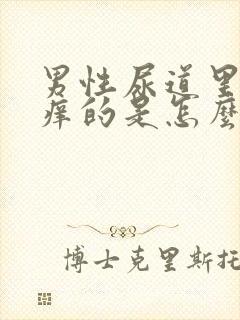 男性尿道里
痒的是怎麽
博士克里斯托